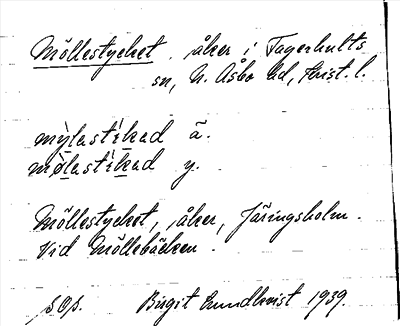 Möllestycket, åker i Fagerhults
sn, N. Åsbo hd, Krist. l.
mỳlastìkad ä.
mølastìkad y.
Möllestycket, åker, Järingsholm.
Vid Möllebäcken.
s 0/8. Birgit Lundkvist 1939